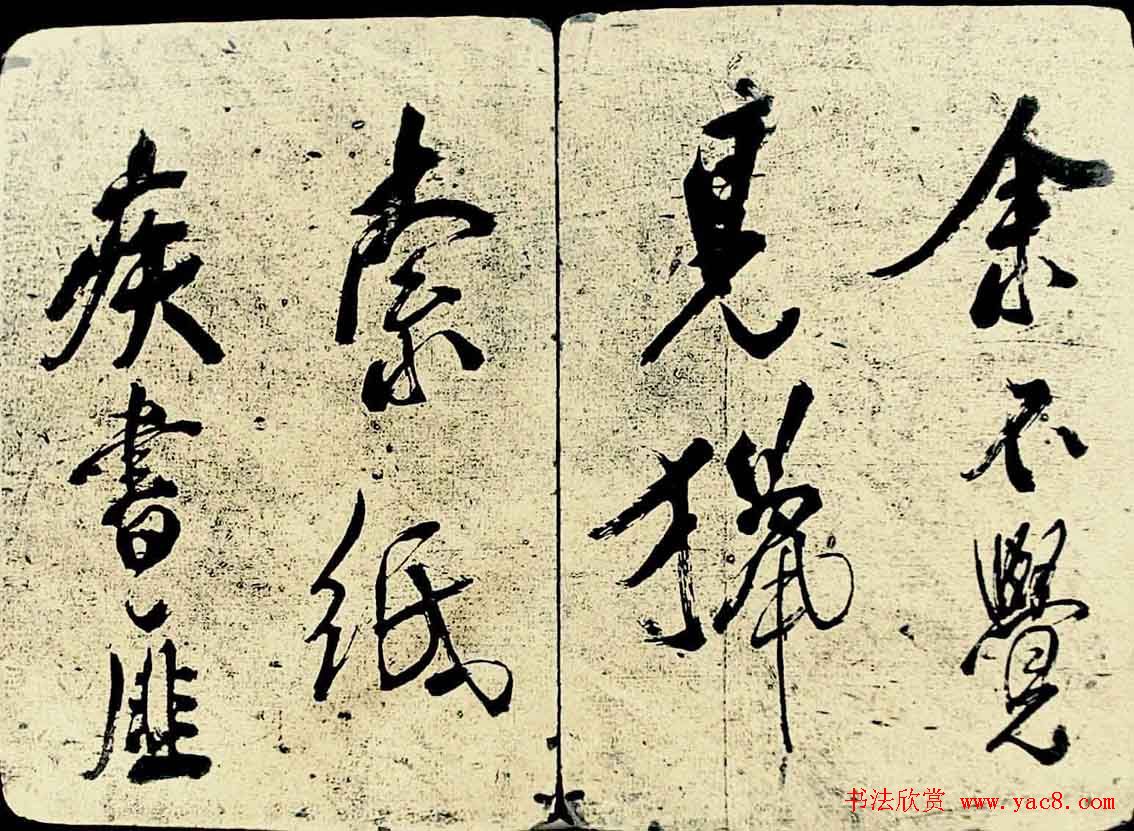 余不覺
見獵
索紙
疾書〻匪
书法欣赏 www.yac8.com